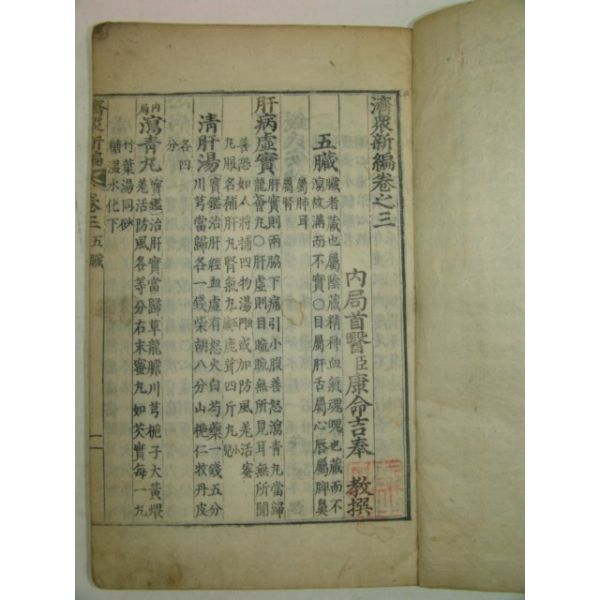 濟衆新編卷之三
內局首醫臣康命吉奉 敎撰
五臟
臟者藏也屬陰藏精神血氣魂魄也藏而不
瀉故滿而不實○目屬肝舌屬心唇屬脾鼻
屬肺耳
屬腎
肝病虛實
肝實則兩脇下痛引小腹善怒瀉靑丸當歸
龍薈丸○肝虛則目䀮䀮無所見耳無所聞
善恐如人將捕四物湯
或加防風羌活蜜
丸服名補肝丸腎氣丸
鹿茸四斤丸
淸肝湯
寶鑑治肝經血虛有怒火白芍藥一錢五分
川芎當歸各一錢柴胡八分山梔仁牧丹皮
各四
分
內局
瀉靑丸
寶鑑治肝實當歸草龍膽川芎梔子大黃煨
羌活防風各等分右末蜜丸如芡實每一丸
竹葉湯同砂
糖溫水化下
濟衆新編
卷三
五臟
一